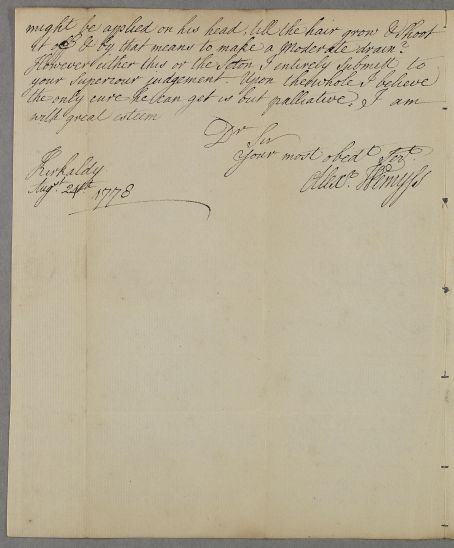 might be applied on his head, till the hair grow & Shoot
it off & by that means to make a Moderate drain?
However either this or the Seton I entirely Submitt to
your Superiour judgement. Upon the whole I believe
the only cure he can get is but palliative. I am
with great esteem
Dr Sir
your most obedt Sert.
Alexr. Wemyss
Kirkaldy
Augt. 24th 1778